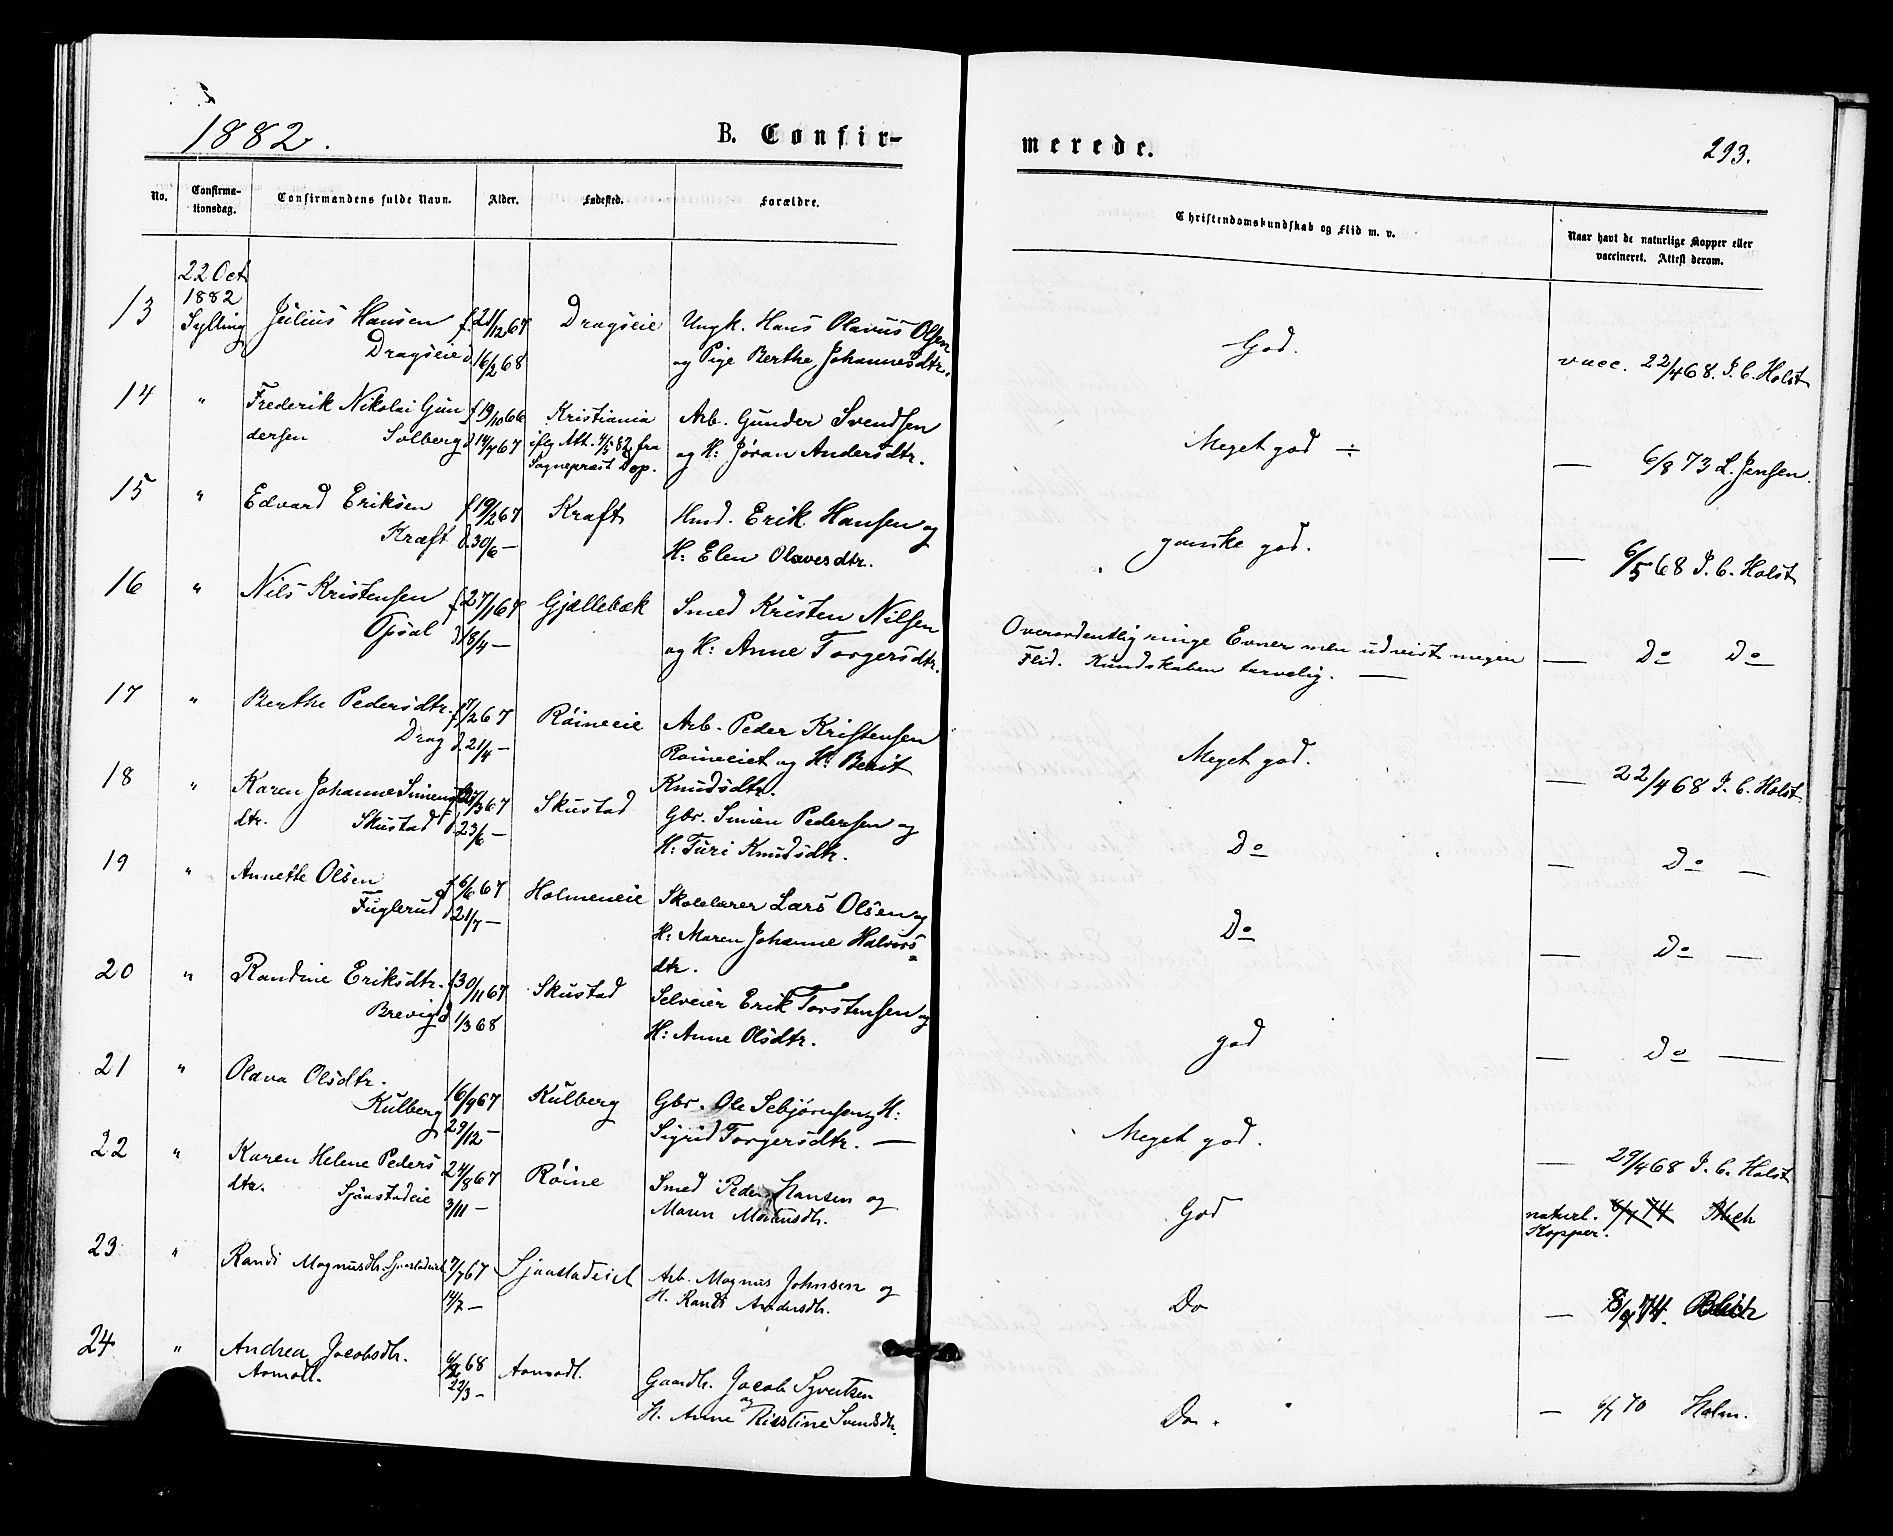 1882.
B. Confir-
merede.
293.
No.
Confirma-
tionsdag.
Confirmandens fulde Navn.
Alder.
Fødested.
Forældre.
Christendomskundskab og Flid m. v.
Naar havt de naturlige Kopper eller
vaccineret. Attest derom.
22 Oct
1882
13 Sylling Julius Hansen f. 21/12 67 Dragseie Ungk. Hans Olavus Olsen God.
Dragseie d. 16/2 68 og Pige Berthe Johannesdtr. vacc. 22/4 68. I. C. Holst
14 " Frederik Nikolai Gun f 19/10 66 Kristiania Arb. Gunder Svendsen Meget god ÷
dersen Solberg d 14/7 67 iflg Att. 4/5 82 fra og H: Jøran Andersdtr. — 6/8 73 L. Jensen.
Sognepræst Dop.
15 " Edvard Eriksen f 19/2 67 Kraft Hmd. Erik Hansen og ganske god.
Kræft d. 30/6 — H: Elen Olavesdtr. — 6/5 68 I. C. Holst
16 " Nils Kristensen f 27/1 67 Gjællebæk Smed Kristen Nilsen Overordentlig ringe Evner men udvist megen
Opsal d 18/4 — og H: Anne Torgersdtr. Flid. Kundskaben tarvelig. — — Do Do
17 " Berthe Pedersdtr. f 17/2 67 Røineeie Arb. Peder Kristensen Meget god.
Drag d. 21/4 — Røineeiet og H: Berit — 22/4 68 I. C. Holst
Knudsdtr.
18 " Karen Johanne Simens 67 Skustad Gbr. Simen Pedersen og Do
dtr. Skustad d. 23/6 — H: Turi Knudsdtr. — Do —
19 " Annette Olsen f 6/6 67 Holmeneie Skolelærer Lars Olsen og Do
Fuglerud d 21/7 — H: Maren Johanne Halvors — Do —
dtr.
20 " Randine Eriksdtr. f 30/11 67 Skustad Selveier Erik Torstensen og god
Brevig d 1/3 68 H: Anne Olsdtr. — Do —
21 " Olava Olsdtr. 16/9 67 Kulberg Gbr. Ole Sebjørnsen og H: Meget god.
Kulberg 29/12 — Sigrid Torgersdtr. — — 29/4 68 I. C. Holst
22 " Karen Helene Peders 24/8 67 Røine Smed Peder Hansen og God naturl.
dtr. Sjaastadeie 3/11 — Maren Kopper.
23 " Randi Magnusdtr. Sjaastadeiet 7/7 67 Sjaastadeiet Arb. Magnus Johnsen og Do
14/7 — H. Randi Andersdtr. — 74.
24 " Andrea Jacobsdtr. 68 Aamodt. Gaardbr. Jacob Syvertsen Do.
Aamodt. 22/3 — og — 70 Holm.
H. Anne Kirstine Svendsdtr.